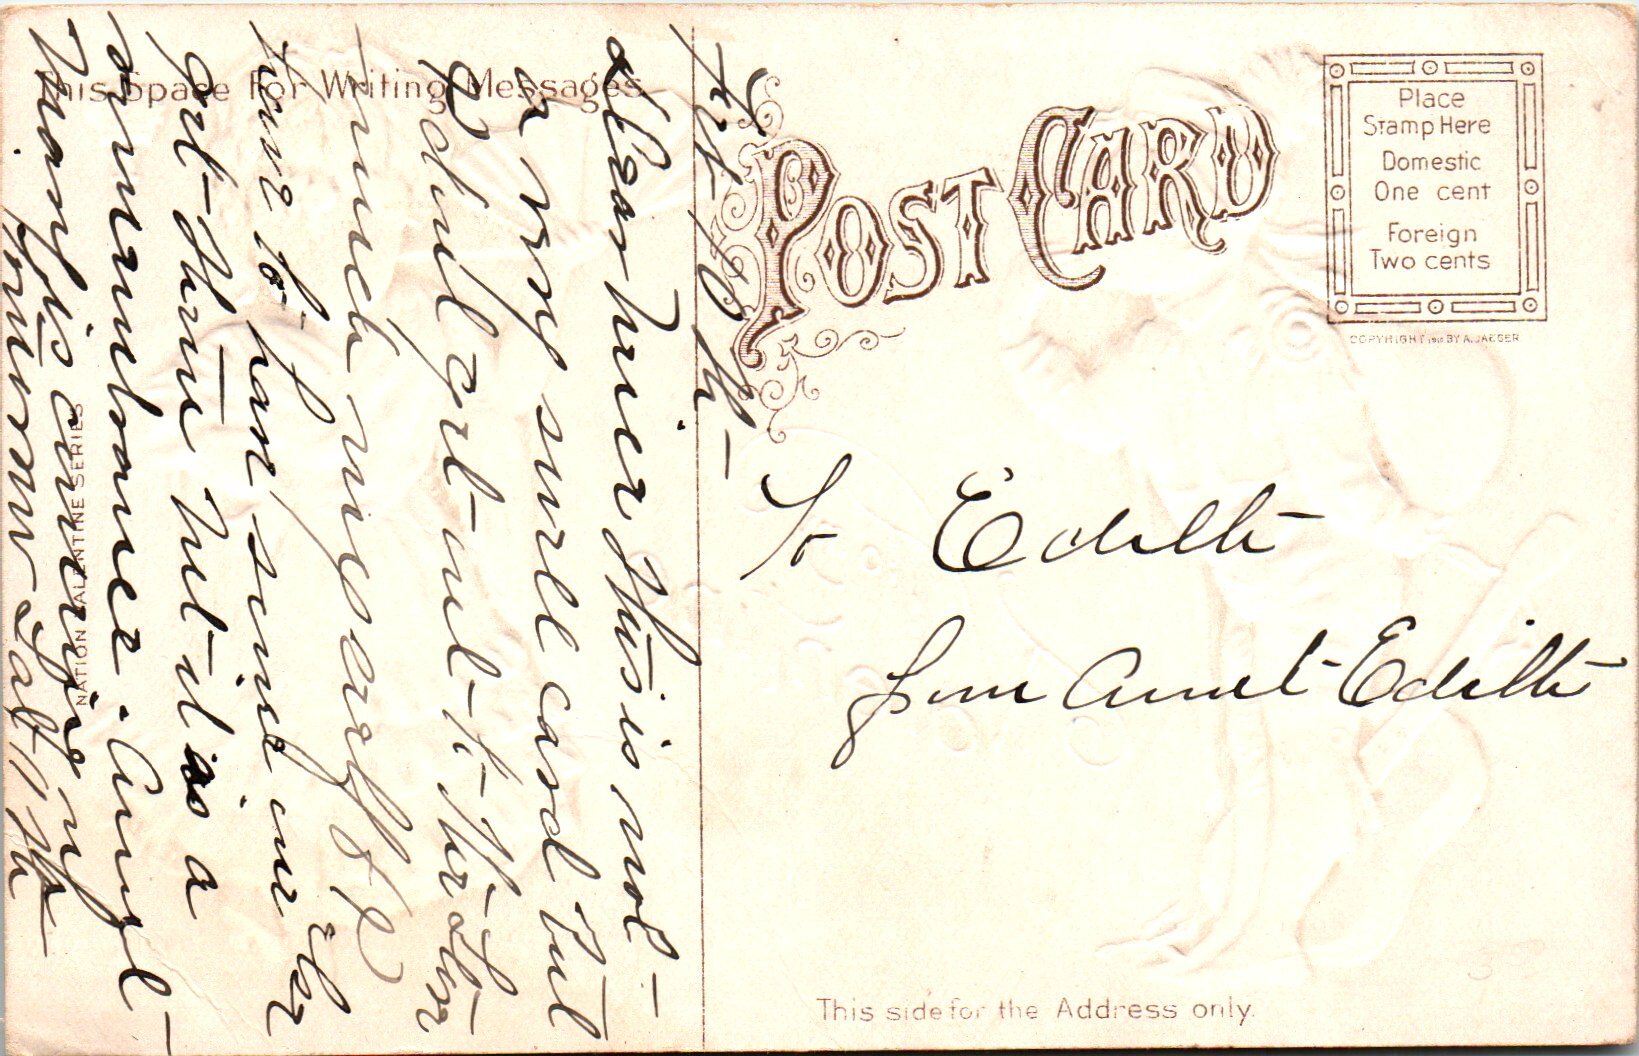 This Space For Writing Messages
Feb 10th —
Dear Niece This is not
a very swell card but
I didnt get out to the
much myself & I
have to have some one else
get them but it is a
remembrance. Aunt
is coming up
tomorrow Sat 11th
NATION VALENTINE SERIES
POST CARD
Place
Stamp Here
Domestic
One cent
Foreign
Two cents
COPYRIGHT 1910 BY A. JAEGER
To Edith
from Aunt Edith
This side for the Address only.